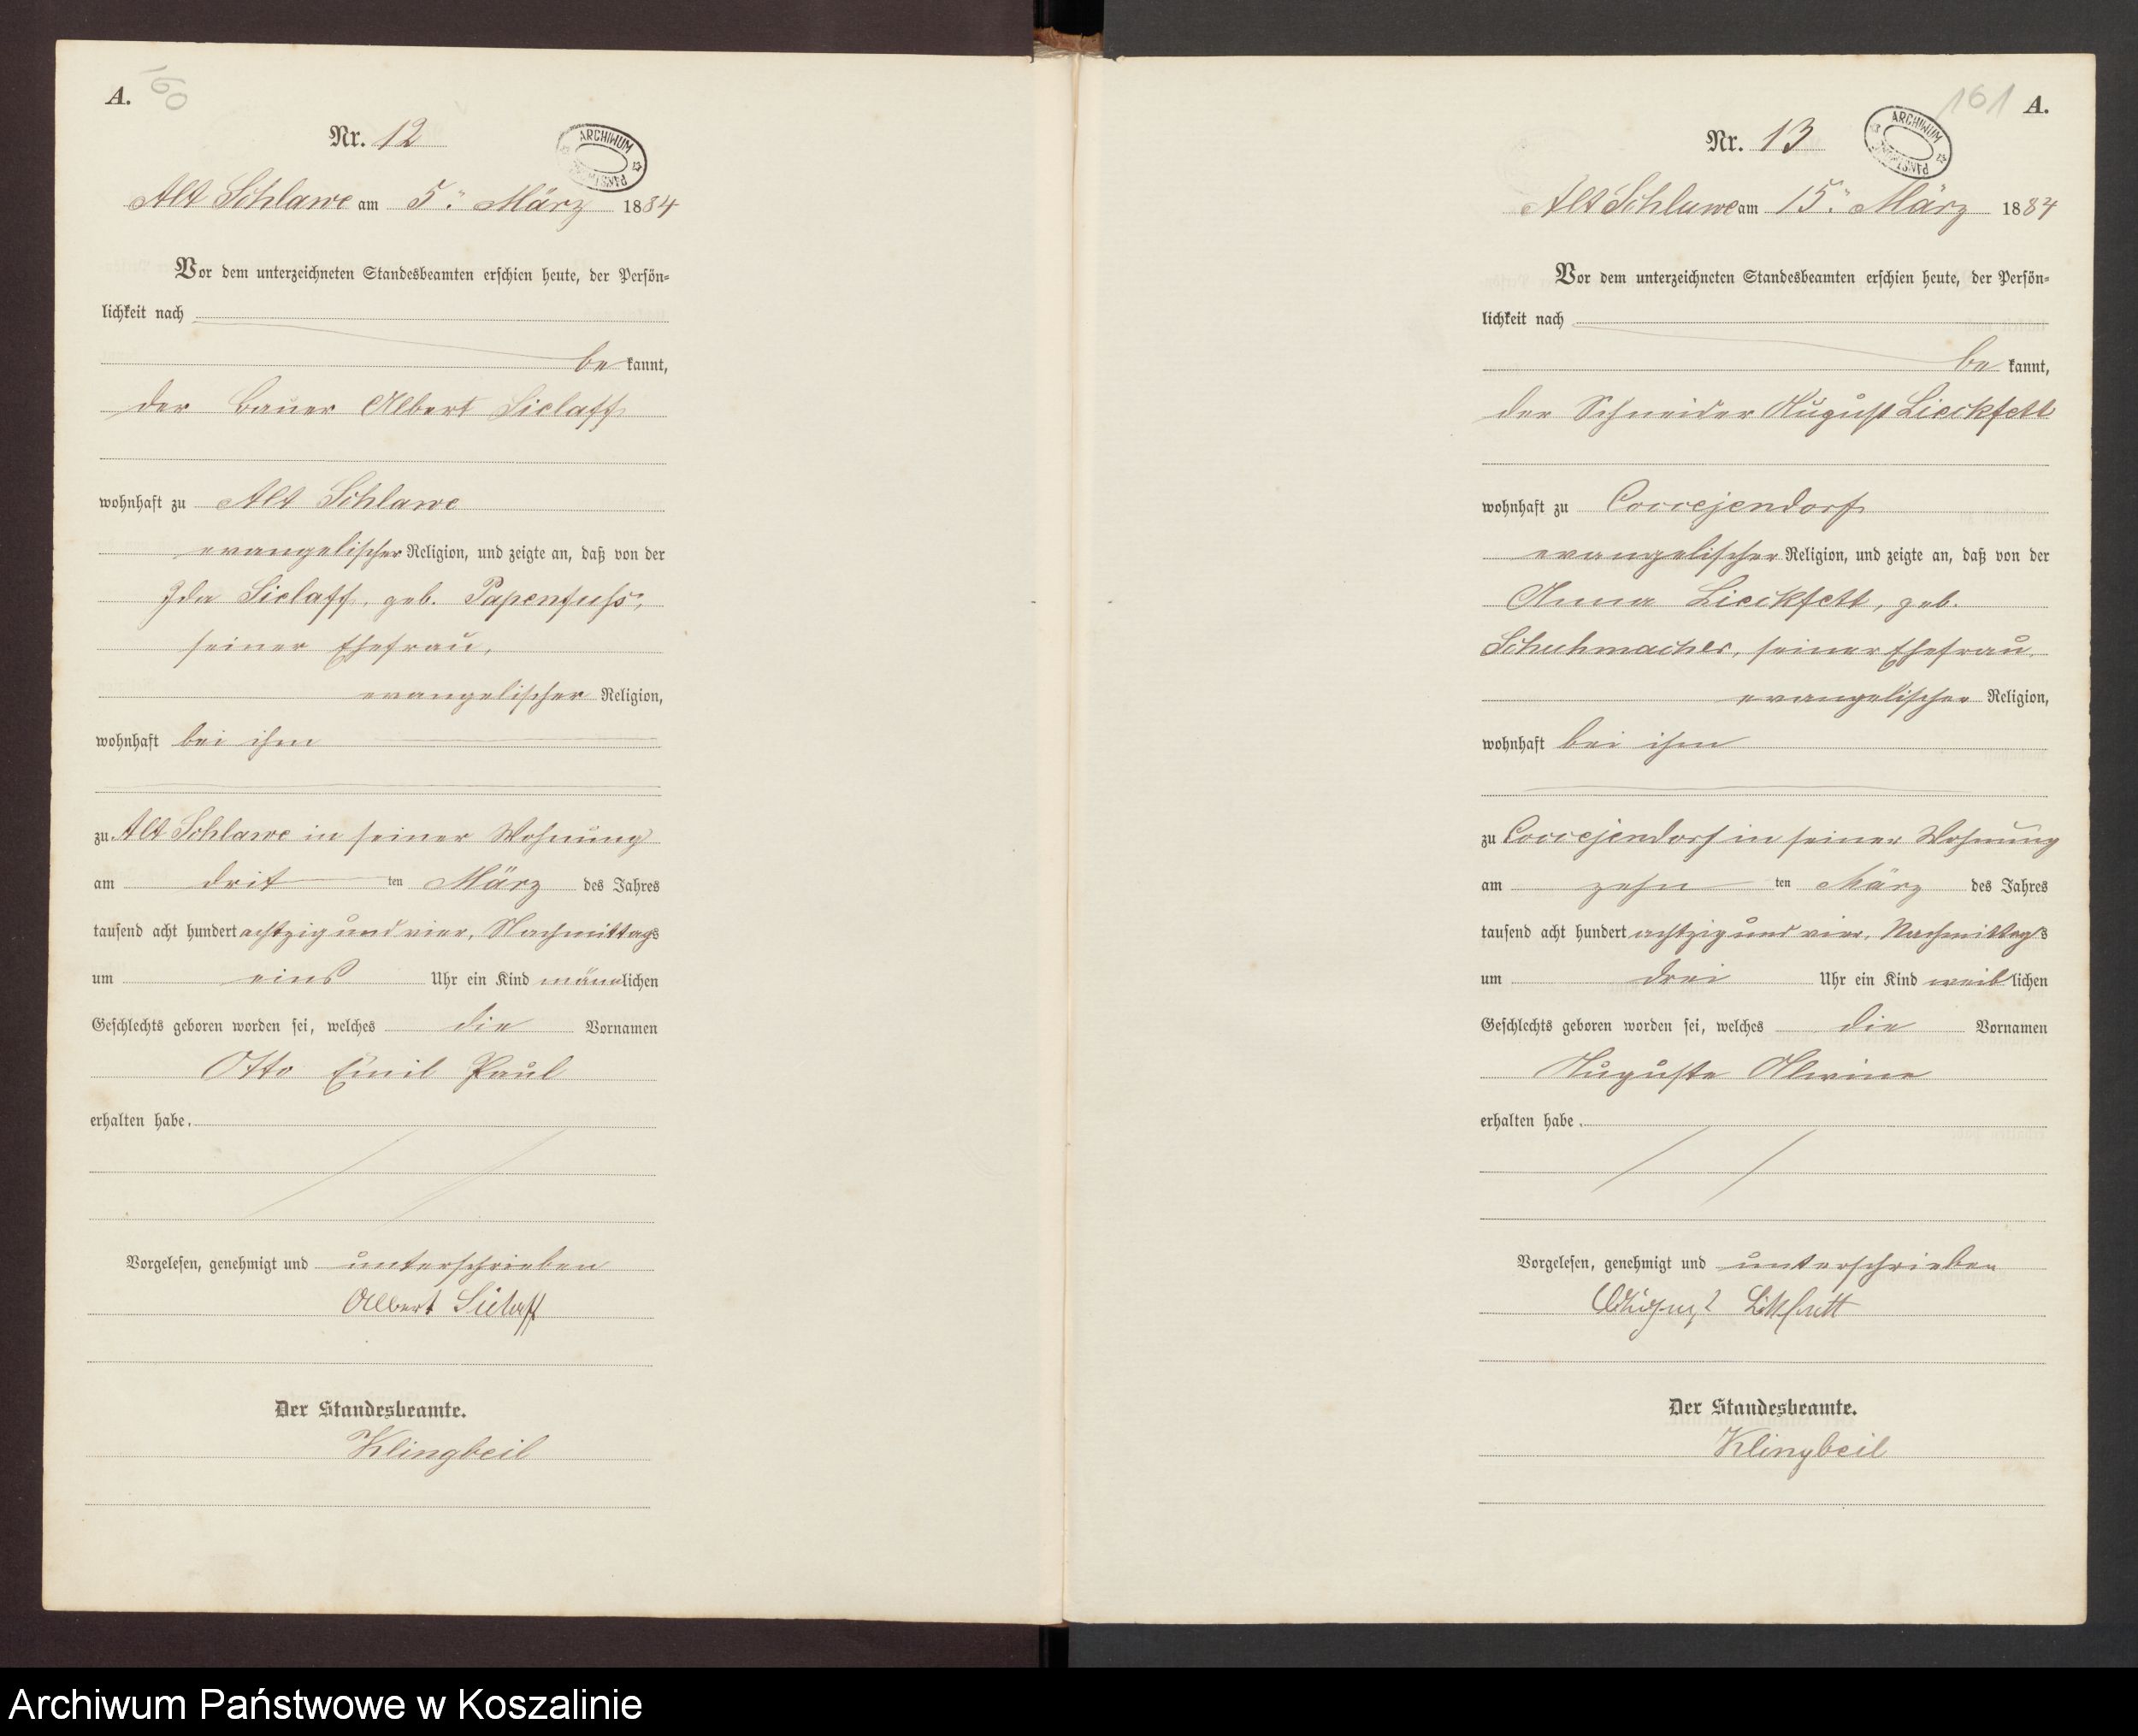 A.
160
Nr. 12
ARCHIWUM
Alt Schlawe am 5. März 1884
Vor dem unterzeichneten Standesbeamten erschien heute, der Persön-
lichkeit nach
be kannt,
der Bauer Albert Sielaff
wohnhaft zu Alt Schlawe
evangelischer Religion, und zeigte an, daß von der
Ida Sielaff, geb. Papenfuss,
seiner Ehefrau,
evangelischer Religion,
wohnhaft bei ihm
zu Alt Schlawe in seiner Wohnung
am drit ten März des Jahres
tausend acht hundert achtzig und vier, Nachmittags
um eins Uhr ein Kind männlichen
Geschlechts geboren worden sei, welches die Vornamen
Otto Emil Paul
erhalten habe.
Vorgelesen, genehmigt und unterschrieben
Albert Sielaff
Der Standesbeamte.
Klingbeil
161 A.
Nr. 13
ARCHIWUM
Alt Schlawe am 15. März 1884
Vor dem unterzeichneten Standesbeamten erschien heute, der Persön-
lichkeit nach
be kannt,
der Schneider August Lieckfett
wohnhaft zu Coccejendorf
evangelischer Religion, und zeigte an, daß von der
Anna Lieckfett, geb.
Schuhmacher, seiner Ehefrau,
evangelischer Religion,
wohnhaft bei ihm
zu Coccejendorf in seiner Wohnung
am zehn ten März des Jahres
tausend acht hundert achtzig und vier, Nachmittags
um drei Uhr ein Kind weiblichen
Geschlechts geboren worden sei, welches die Vornamen
Auguste Alwine
erhalten habe.
Vorgelesen, genehmigt und unterschrieben
August
Der Standesbeamte.
Klingbeil
Archiwum Państwowe w Koszalinie